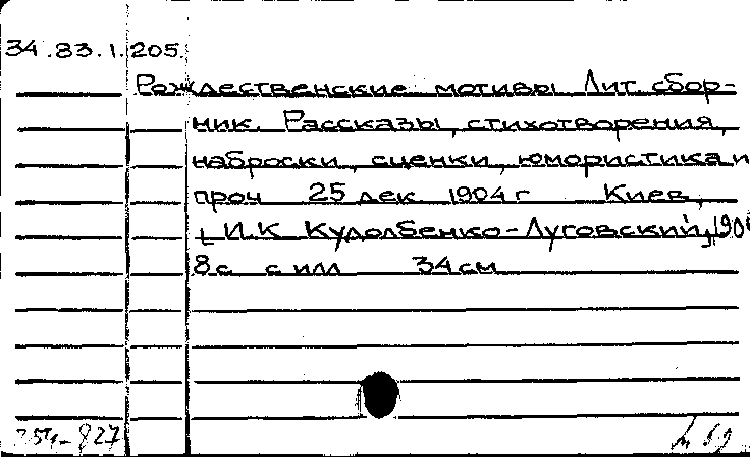 34.83.1.205.
Рождественские мотивы Лит. сбор-
ник. Рассказы, стихотворения,
наброски, сценки, юмористика и
проч 25 дек. 1904 г Киев,
[И.К Кудолбенко-Луговский],
8 с с илл 34 см